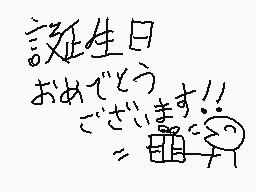 誕生日
おめでとう
ございます!!